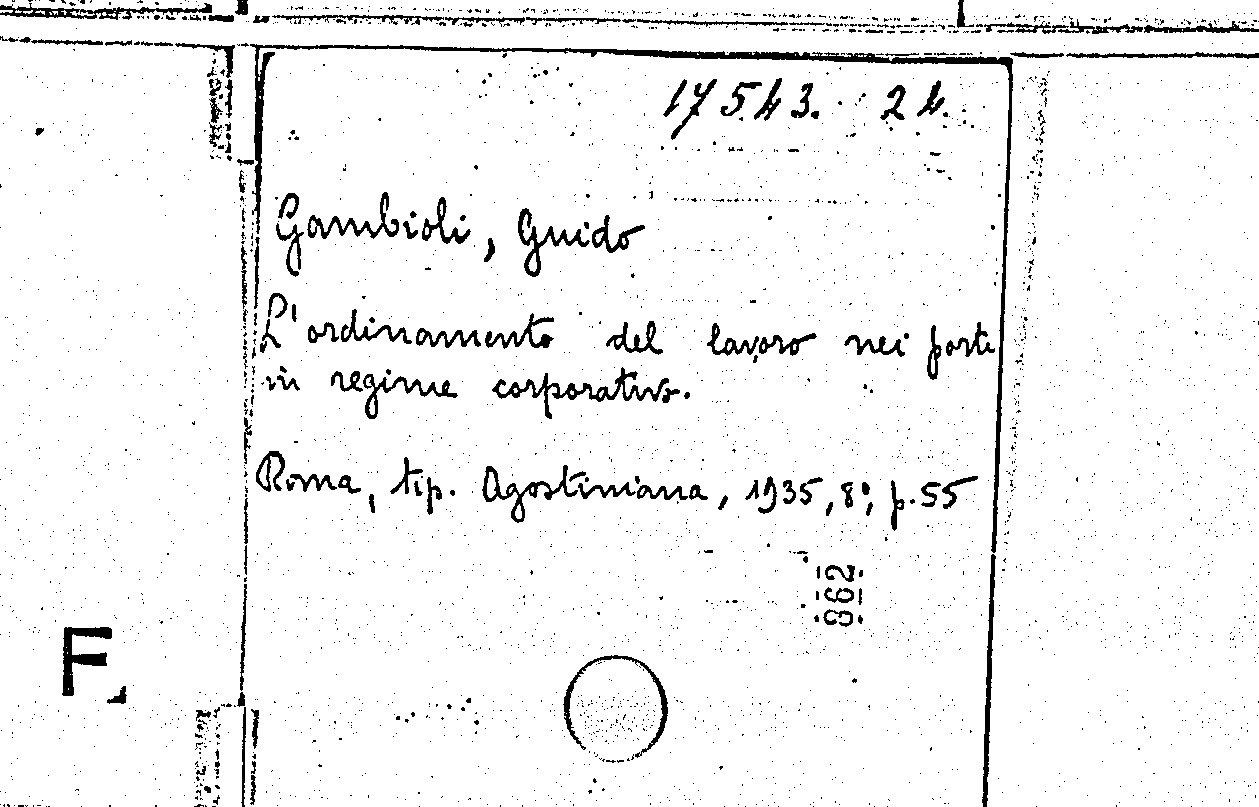 17543. 24.
Gambioli, Guido
L'ordinamento del lavoro nei porti
in regime corporativo.
Roma, tip. Agostiniana, 1935, 8°, p. 55
862
F